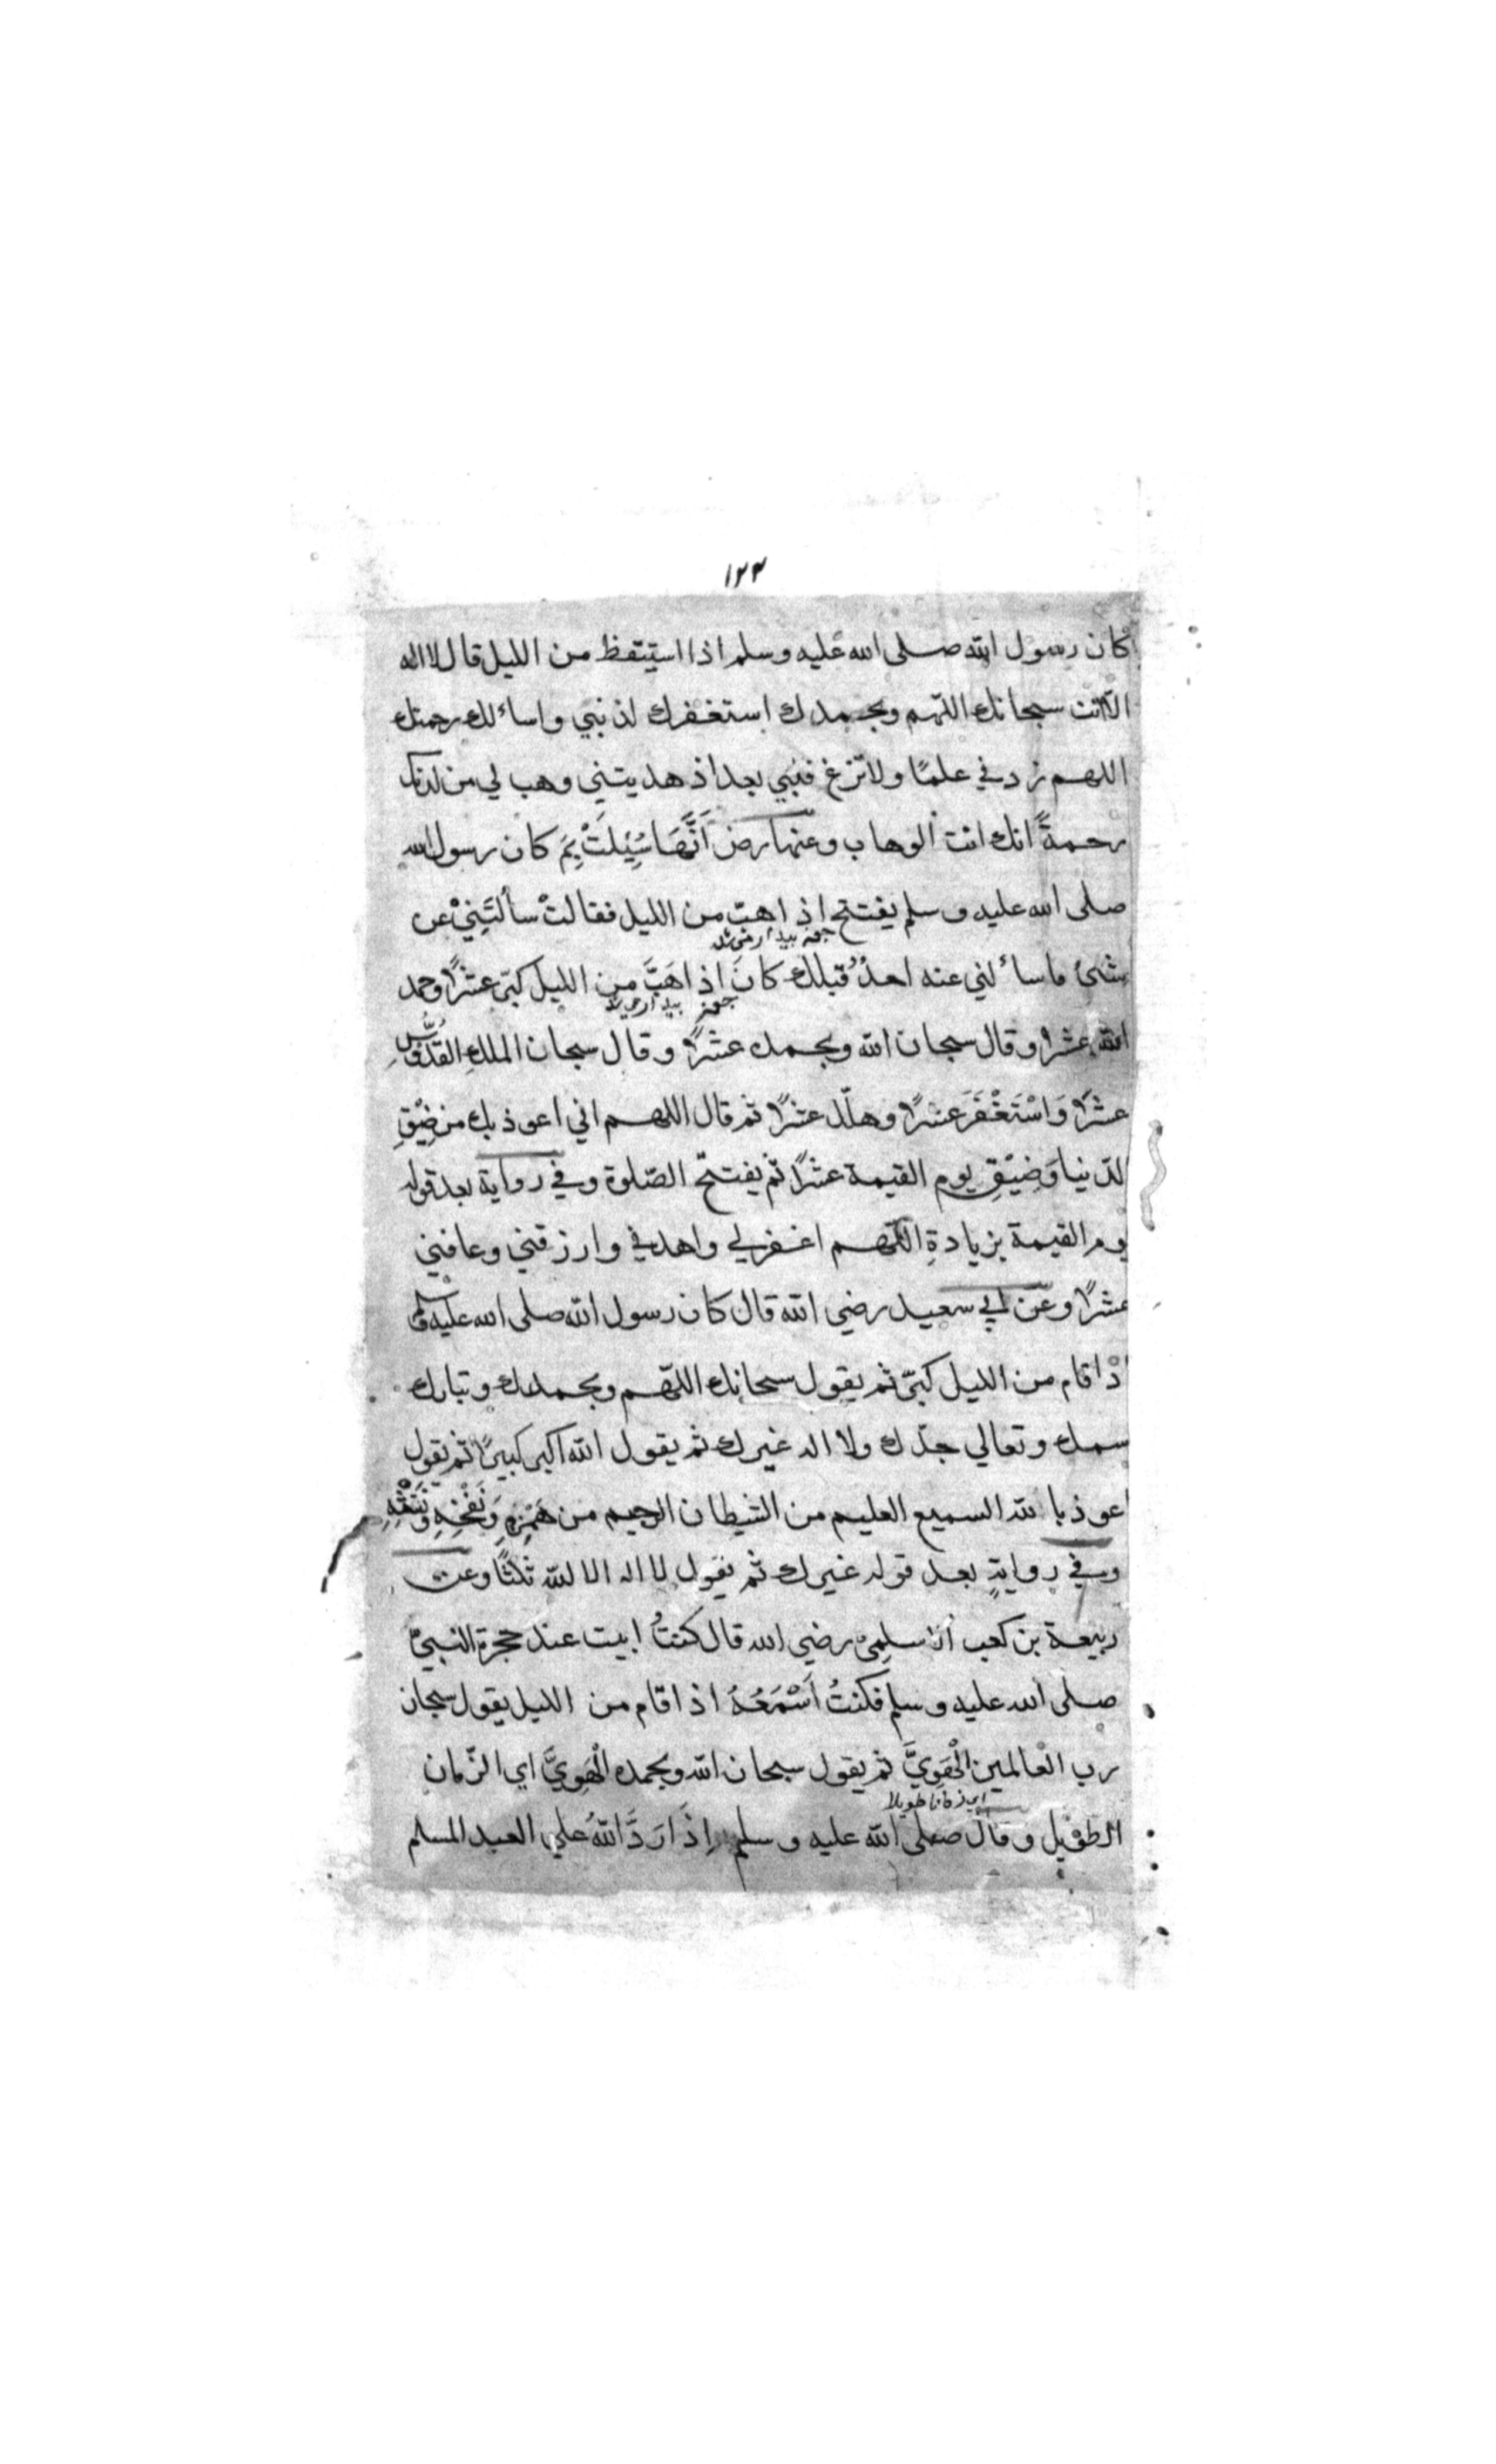 ١٢٣
كان رسول الله صلى الله عليه وسلم اذا استيقظ من الليل قال لا اله
الّا انت سبحانك اللّهم وبحمدك استغفرك لذنبي واسألك رحمتك
اللهم زدني علمًا ولا تزغ قلبي بعد اذ هديتني وهب لي من لدنك
رحمةً انك انت الوهاب وعنها رض اَنَّهَا سُئِلَتْ بِمَ كان رسول الله
صلى الله عليه وسلم يفتتح اذا هبّ من الليل فقالتْ سألتَنِيْ عن
شئ ما سألني عنه احدٌ قبلك كانَ اذا هَبَّ من الليل كبّر عشرًا وحمد
الله عشرا وقال سبحان الله وبحمده عشرًا وقال سبحان الملكِ القدّوسِ
عشرًا وَاسْتَغْفَرَ عشرًا وهلّل عشرًا ثم قال اللهم اني اعوذ بك من ضِيْقِ
الدّنيا وَضِيْقِ يوم القيمة عشرًا ثم يفتتح الصّلوة وفي رواية بعد قوله
يوم القيمة بزيادةِ اللّهم اغفرلي واهدني وارزقني وعافني
عشرًا وعن ابي سعيد رضي الله قال كان رسول الله صلى الله عليه وسلم
اذا قام من الليل كبّر ثم يقول سبحانك اللّهم وبحمدك وتبارك
سمك وتعالي جدّك ولا اله غيرك ثم يقول الله اكبر كبيرًا ثم يقول
اعوذ بالله السميع العليم من الشيطان الرجيم من هَمْزِهِ وَنَفْخِهِ وَنَفْثِهِ
وفي روايةٍ بعد قوله غيرك ثم يقول لا اله الا الله ثلثًا وعن
ربيعة بن كعب الاسلمِيّ رضي الله قال كنتُ ابيت عند حجرة النبيّ
صلى الله عليه وسلم فكنتُ اَسْمَعُهُ اذا قام من الليل يقول سبحان
رب العالمين الْهَوِيَّ ثم يقول سبحان الله وبحمده الْهَوِيَّ اي الزّمان
اي زمانا طويلا
الطويل وقال صلى الله عليه وسلم اِذَا رَدَّ اللهُ علي العبد المسلم